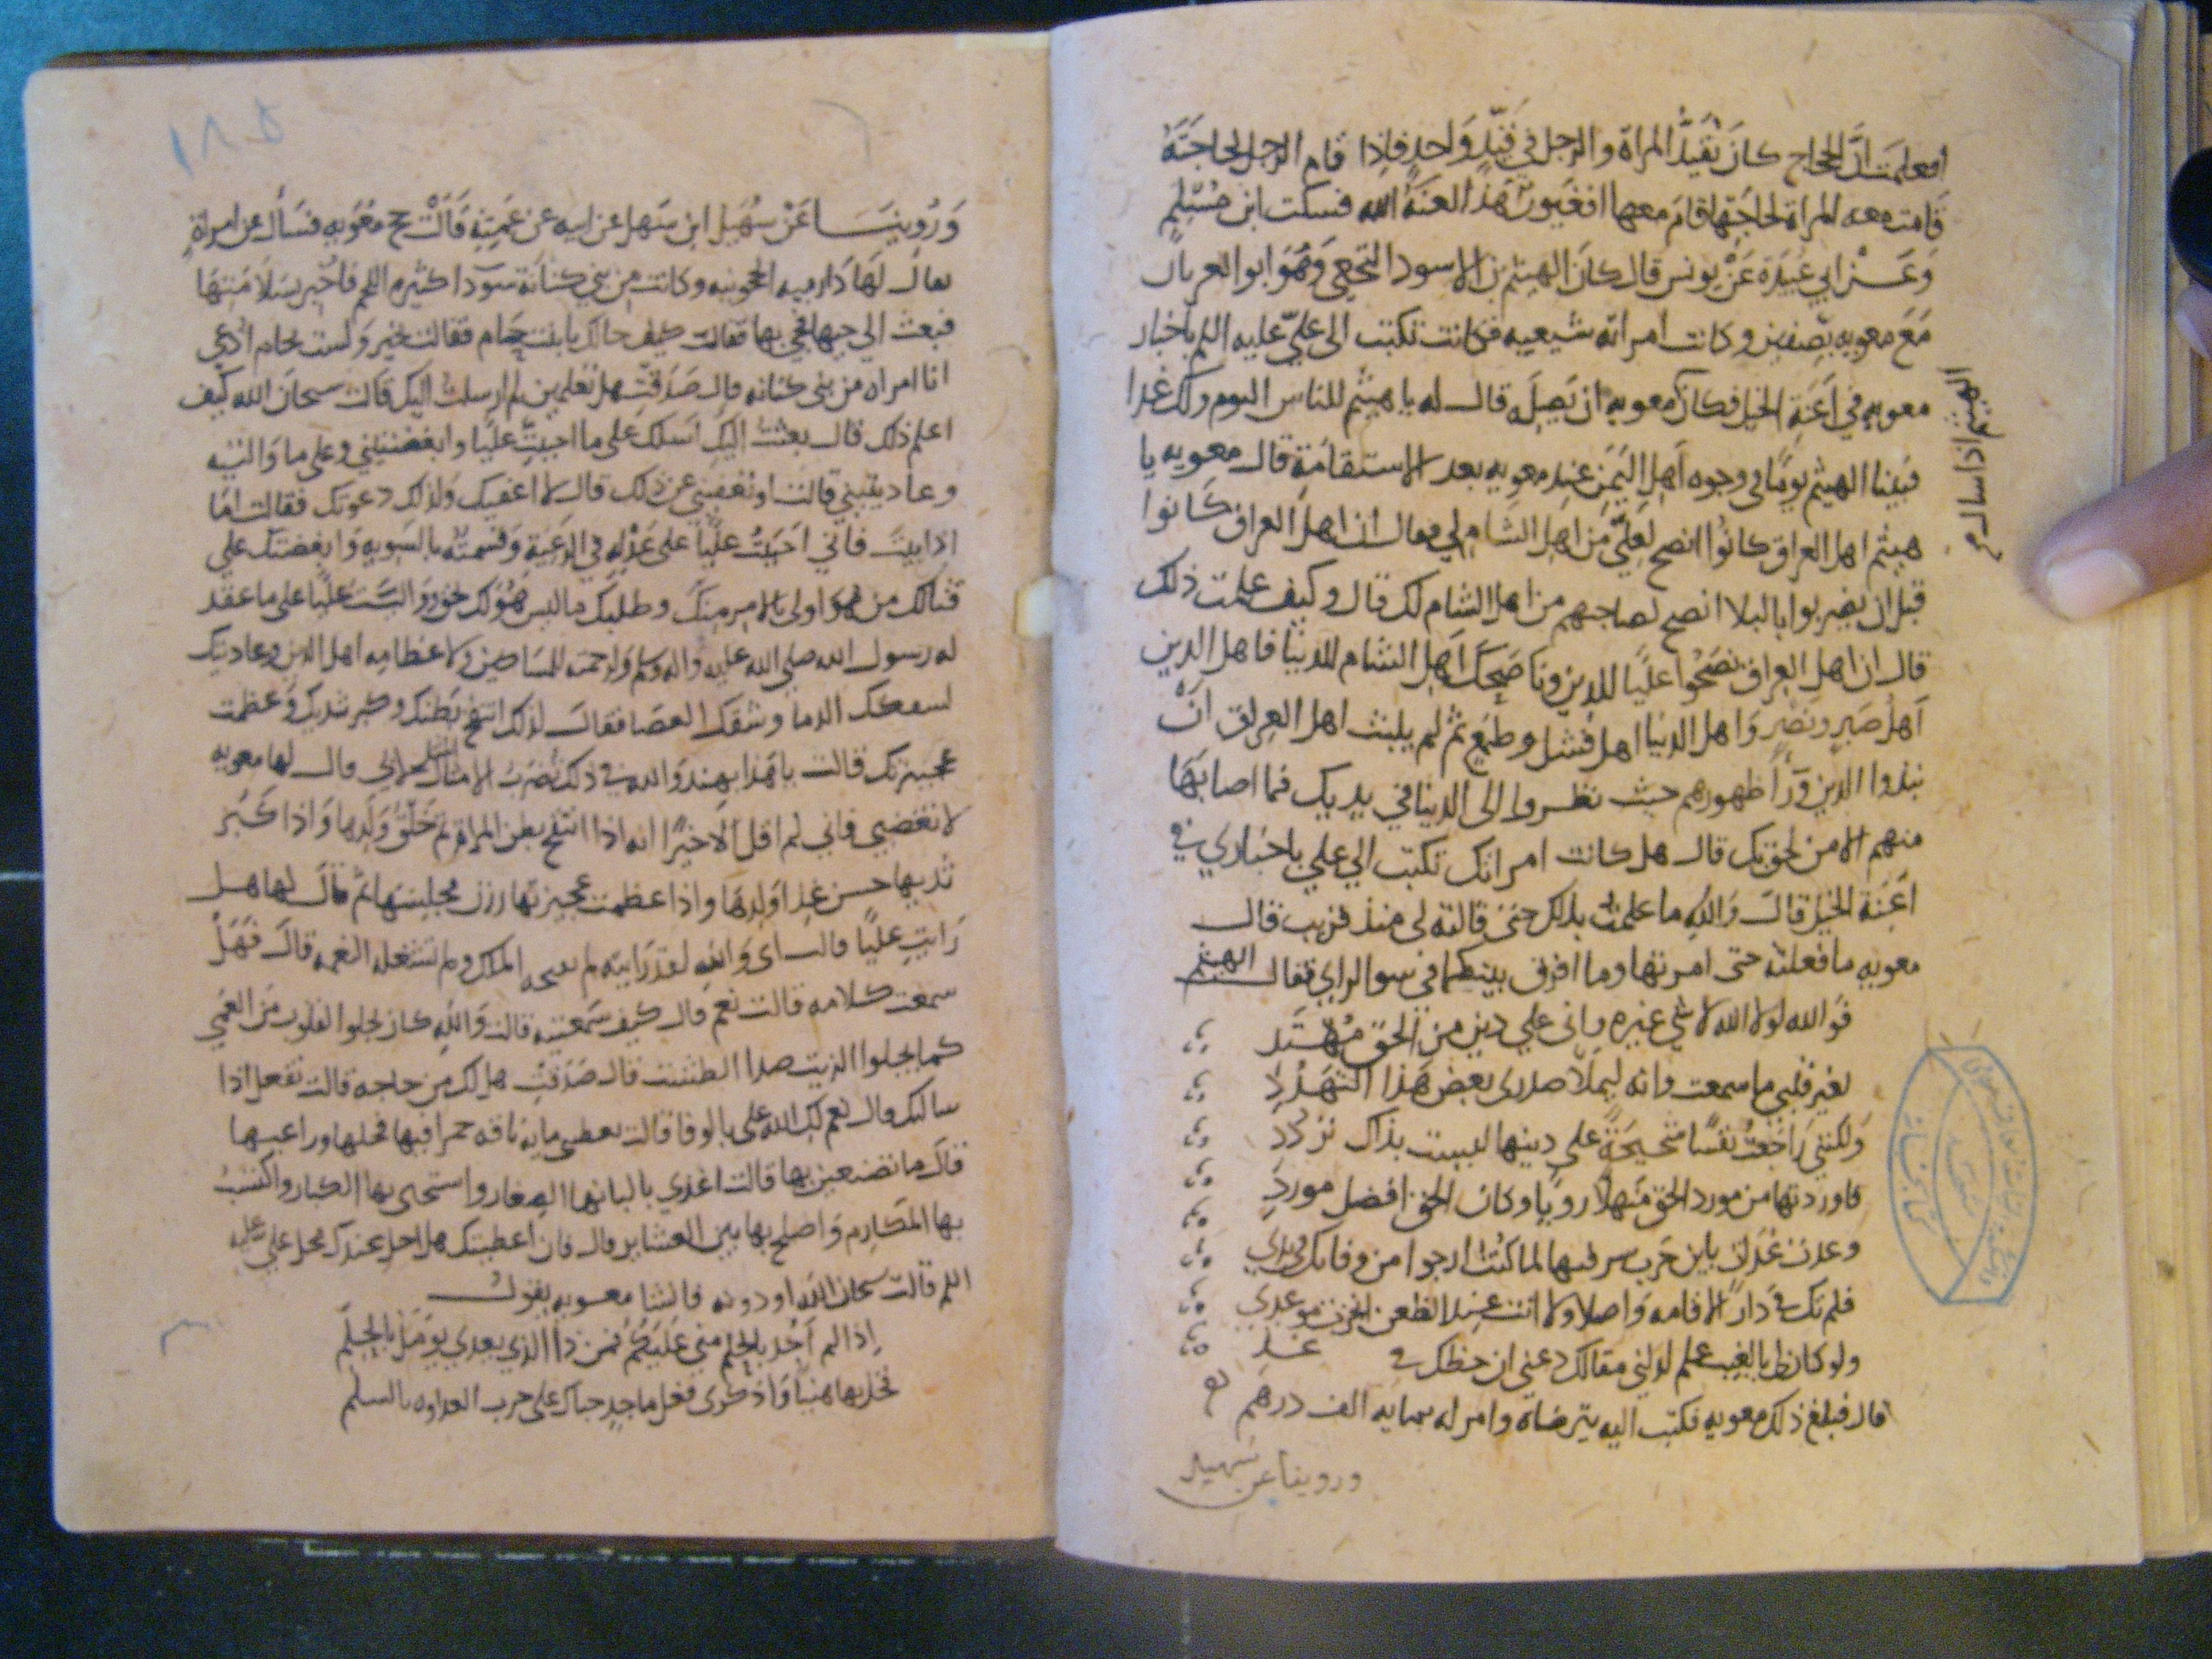 أمعلمت ان الحجاج كان يقيد المراة والرجل في قيد واحد فاذا قام الرجل لحاجته
قامت معه المراة لحاجتها قام معها افغيور هذا لعنة الله فسكت ابن مسلم
وعن ابي عبيدة عن يونس قال كان الهيثم بن الاسود النخعي وهو ابو العريان
مع معويه بصفين وكانت امراته شيعيه فكانت تكتب الى علي عليه السلم باخبار
معويه في اعنة الخيل فكان معويه ان يصله قال له يا هيثم للناس اليوم ولك غدا
فبينا الهيثم يوما في وجوه اهل اليمن عند معويه بعد الاستقامة قال معويه يا
هيثم اهل العراق كانوا انصح لعلي من اهل الشام لي فقال ان اهل العراق كانوا
قبل ان يضربوا بالبلا انصح لصاحبهم من اهل الشام لك قال وكيف علمت ذلك
قال ان اهل العراق نصحوا عليا للدين وناصحك اهل الشام للدنيا فاهل الدين
اهل صبر ونصر واهل الدنيا اهل فشل وطمع ثم لم يلبث اهل العراق ان
نبذوا الدين ورا ظهورهم حيث نظروا الى الدنيا في يديك فما اصابها
منهم الا من لحق بك قال هل كانت امراتك تكتب الي علي باخباري في
اعنة الخيل قال والله ما علمت بذلك حتى قالته لي منذ قريب قال
معويه ما فعلته حتى امرتها وما افرق بينكما في سو الراي فقال الهيثم
فوالله لولا الله لا شي غيره واني علي دين من الحق مهتد
لغير قلبي ما سمعت وانه ليملا صدري بعض هذا التهدد
ولكنني راجعت نفسا شحيحة علي دينها ليست بذاك تردد
فاوردتها من مورد الحق منهلا رويا وكان الحق افضل مورد
وعدت عدات يابن حرب سرفيها لما كنت ارجوا من وفايك
فلم تك في دار الاقامه واصلا ولا انت عند الظعن انجزت موعدي
ولو كان لي بالغيب علم لردني مقالك دعني ان حظك في غد
قال فبلغ ذلك معويه فكتب اليه يترضاه وامر له بمايه الف درهم
وروينا عن سهيل
وروينا عن سهيل ابن سهل عن ابيه عن عمته قالت حج معويه فسال عن امراة
يعال لها دارميه الحجونيه وكانت من بني كنانة سودا كثيره اللحم فاخبر بسلامتها
فبعث الي جيها فجي بها فقالت كيف حالك يا بنت حام فقالت بخير ولست لحام ادعي
انا امراه من بني كنانه قال صدقت هل تعلمين لم ارسلت اليك قالت سبحان الله كيف
اعلم ذلك قال بعثت اليك اسلك على ما احببت عليا وابغضتيني وعلى ما واليته
وعاديتيني قالت اوتعفيني عن ذلك قال لا اعفيك ولذلك دعوتك فقالت اما
اذا ابيت فاني احببت عليا على عدله في الرعية وقسمته بالسويه وابغضتك علي
قتالك من هو اولى بالامر منك وطلبك ما ليس هو لك بحق وواليت عليا على ما عقد
له رسول الله صلي الله عليه واله وسلم ولرحمته للمساكين ولاعظامه اهل الدين وعاديتك
لسفكك الدما وشقك العصا فقال لذلك انتفخ بطنك وكبر ثديك وعظمت
عجيزتك فقالت يا هذا بهند والده في ذلك تضرب الامثال لا لي قال لها معويه
لا تغضبي فاني لم اقل الا خيرا انه اذا انتفخ بطن المراة تم خلق ولدها واذا كبر
ثدييها حسن غذا ولدها واذا عظمت عجيزتها رزن مجلسها ثم قال لها هل
رايت عليا قالت اى والله لقد رايته لم يفتنه الملك ولم تشغله النعمه قال فهل
سمعت كلامه قالت نعم قال كيف سمعتيه قالت والله كان يجلوا القلوب من العمي
كما يجلوا الزيت صدا الطست قال صدقت هل لك من حاجه قالت تفعل اذا
سالتك قال نعم لك الله علي بالوفا قالت تعطيني مايه ناقه حمرا فيها فحلها وراعيها
قال ما تصنعين بها قالت اغذي بالبانها الصغار واستحيى بها الكبار واكتسب
بها المكارم واصلح بها بين العشاير قال فان اعطيتك هل احل عندك محل علي عليه
السلم قالت سبحان الله او دونه فانشا معويه يقول
اذا لم اجد بالحلم مني عليكم فمن ذا الذي بعدي يومل بالحلم
خذيها هنيا واذكرى فعل ماجد حباك على حرب العداوه بالسلم